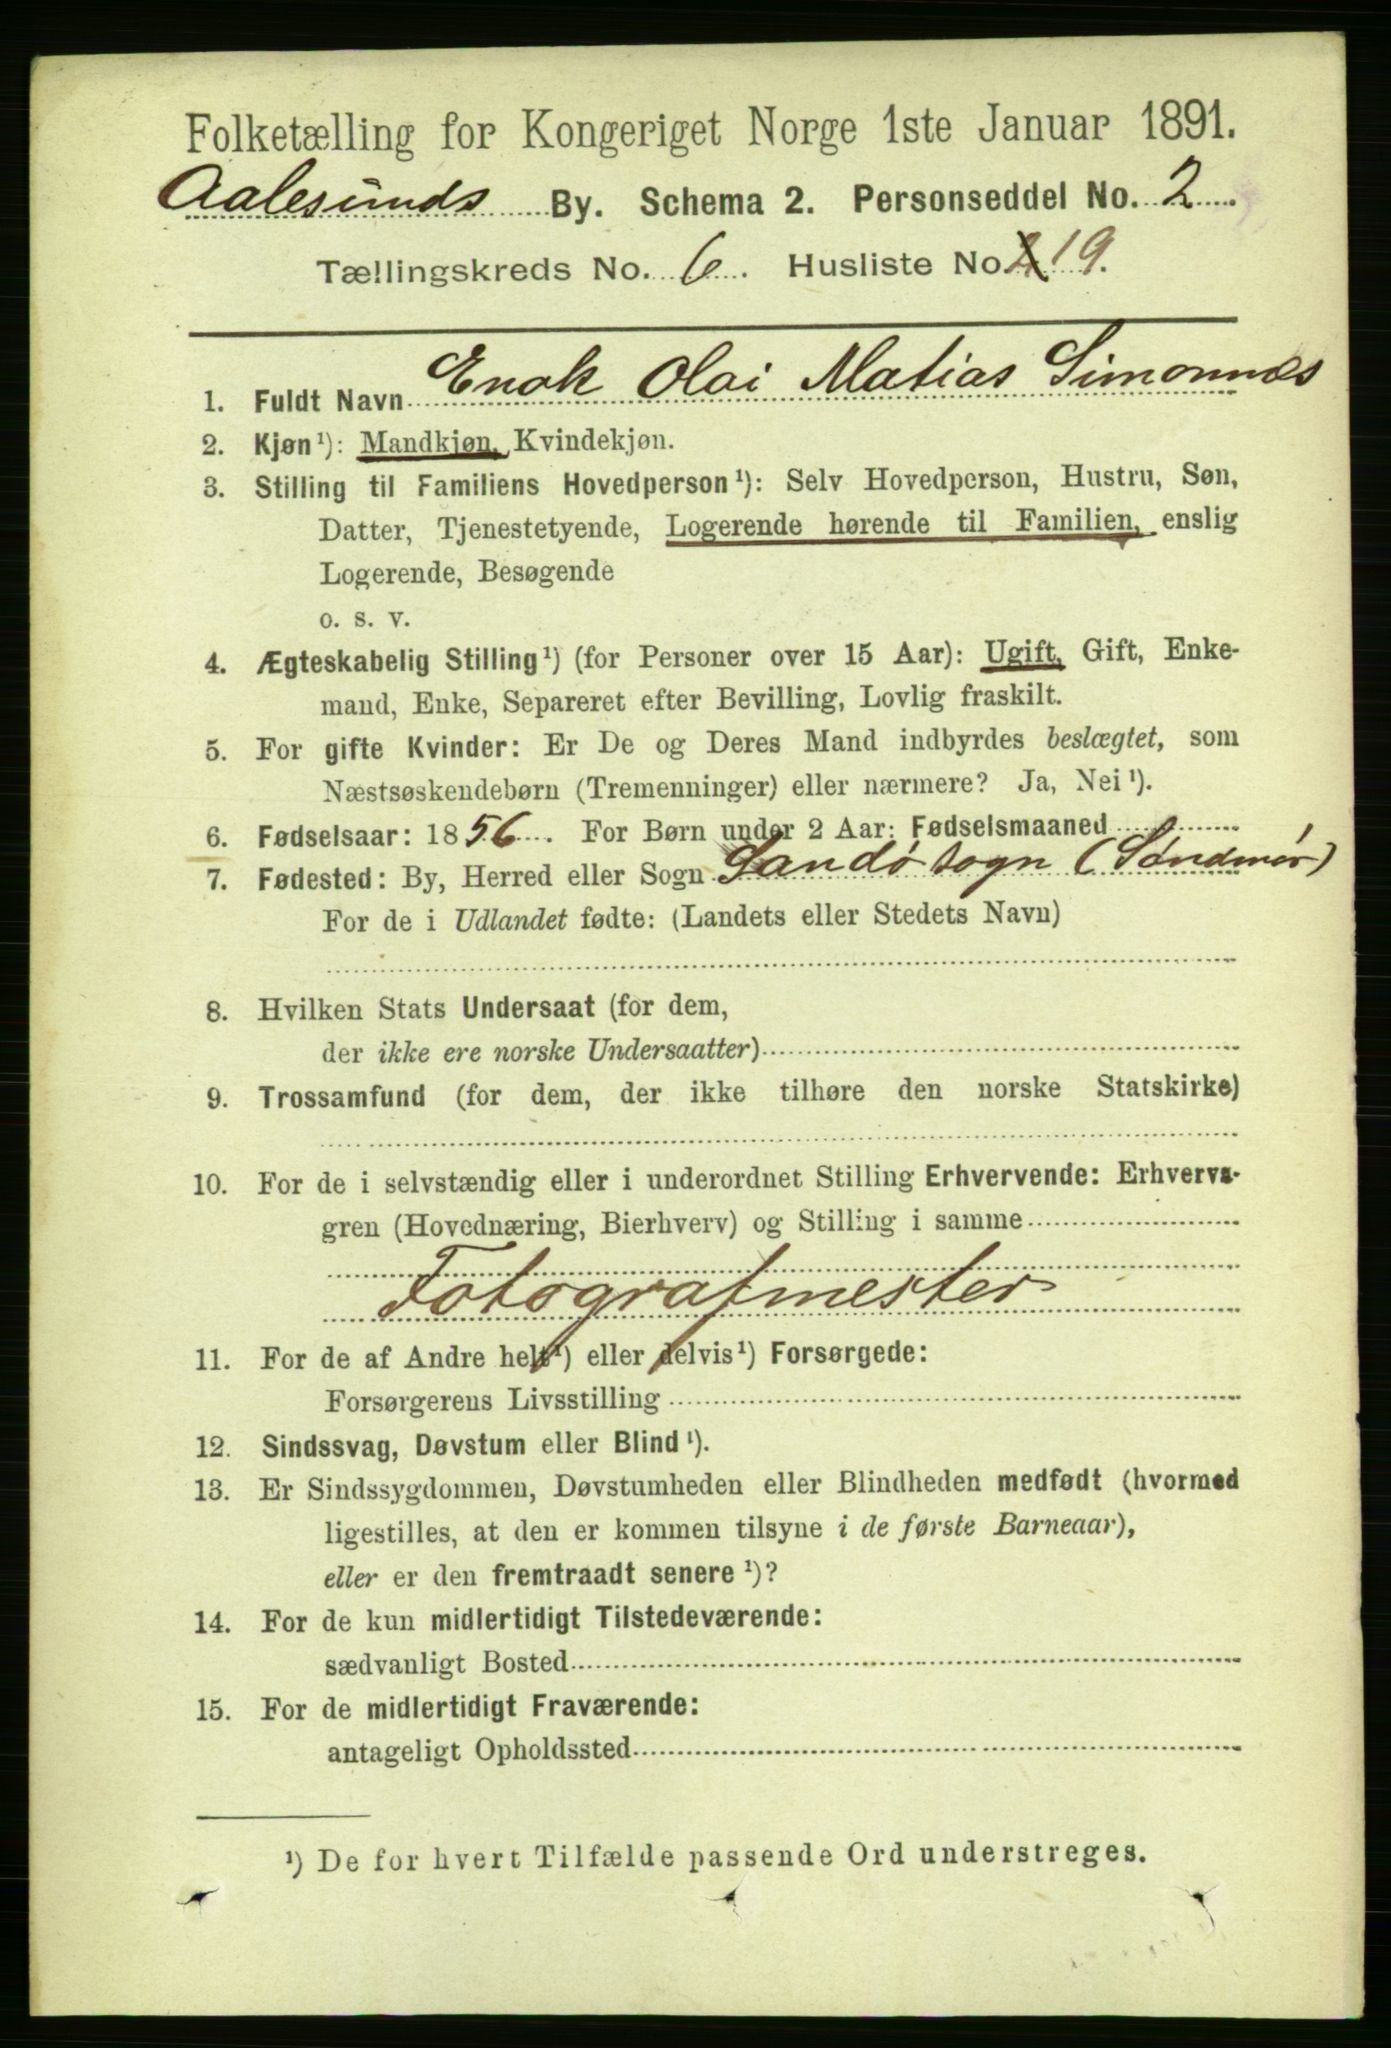 Folketælling for Kongeriget Norge 1ste Januar 1891.
Aalesunds By. Schema 2. Personseddel No. 2.
Tællingskreds No. 6. Husliste No. 19.
1. Fuldt Navn Enok Olai Matias Simonnæs
2. Kjøn¹): Mandkjøn, Kvindekjøn.
3. Stilling til Familiens Hovedperson¹): Selv Hovedperson, Hustru, Søn,
Datter, Tjenestetyende, Logerende hørende til Familien, enslig
Logerende, Besøgende
o. s. v.
4. Ægteskabelig Stilling¹) (for Personer over 15 Aar): Ugift, Gift, Enke-
mand, Enke, Separeret efter Bevilling, Lovlig fraskilt.
5. For gifte Kvinder: Er De og Deres Mand indbyrdes beslægtet, som
Næstsøskendebørn (Tremenninger) eller nærmere? Ja, Nei¹).
6. Fødselsaar: 1856. For Børn under 2 Aar: Fødselsmaaned
7. Fødested: By, Herred eller Sogn Sandö sogn (Söndmör)
For de i Udlandet fødte: (Landets eller Stedets Navn)
8. Hvilken Stats Undersaat (for dem,
der ikke ere norske Undersaatter)
9. Trossamfund (for dem, der ikke tilhøre den norske Statskirke)
10. For de i selvstændig eller i underordnet Stilling Erhvervende: Erhvervs-
gren (Hovednæring, Bierhverv) og Stilling i samme
Fotografmester
11. For de af Andre helt¹) eller delvis¹) Forsørgede:
Forsørgerens Livsstilling
12. Sindssvag, Døvstum eller Blind¹).
13. Er Sindssygdommen, Døvstumheden eller Blindheden medfødt (hvormed
ligestilles, at den er kommen tilsyne i de første Barneaar),
eller er den fremtraadt senere¹)?
14. For de kun midlertidigt Tilstedeværende:
sædvanligt Bosted
15. For de midlertidigt Fraværende:
antageligt Opholdssted
¹) De for hvert Tilfælde passende Ord understreges.